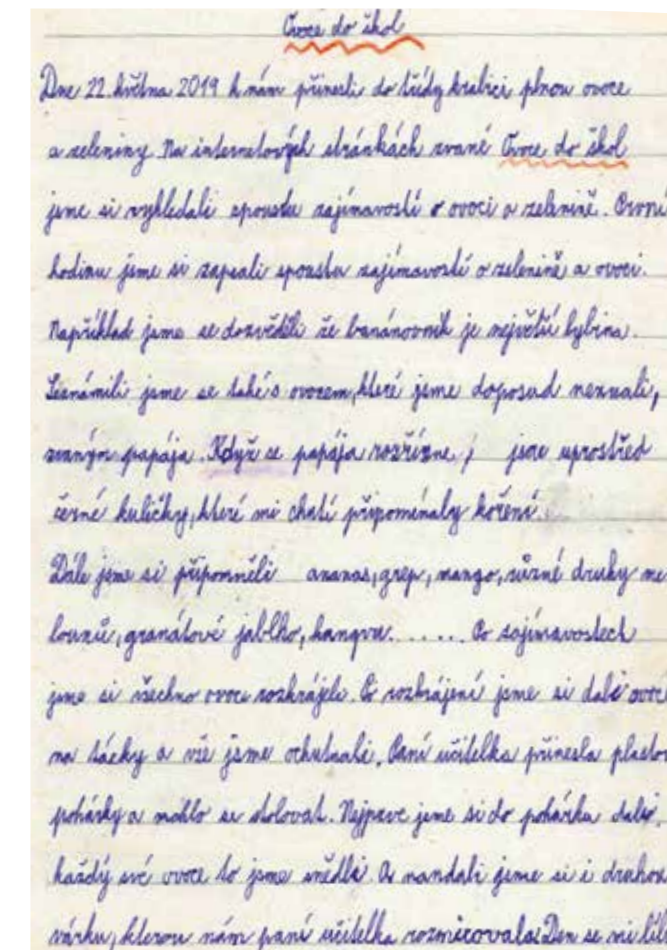 Ovoce do škol
Dne 22. května 2019 k nám přinesli do třídy krabici plnou ovoce
a zeleniny. Na internetových stránkách zvané Ovoce do škol
jsme si vyhledali spoustu zajímavostí o ovoci a zelenině. První
hodinu jsme si zapsali spoustu zajímavostí o zelenině a ovoci.
Například jsme se dozvěděli že banánovník je největší bylina.
Seznámili jsme se také s ovocem, které jsme doposud neznali,
zvaným papája. Když se papája rozřízne, jsou uprostřed
černé kuličky, které mi chutí připomínaly koření.
Dále jsme si připomněli ananas, grep, mango, různé druhy me
lounů, granátové jablko, . . . . . Po zajímavostech
jsme si všechno ovoce rozkrájeli. Po rozkrájení jsme si dali ovoc
na tácky a vše jsme ochutnali. Paní učitelka přinesla plastov
pohárky a mohlo se stolovat. Nejprve jsme si do pohárku dali,
každý své ovoce to jsme snědli. A nandali jsme si i druhou
várku, kterou nám paní učitelka rozmixovala. Den se mi líb